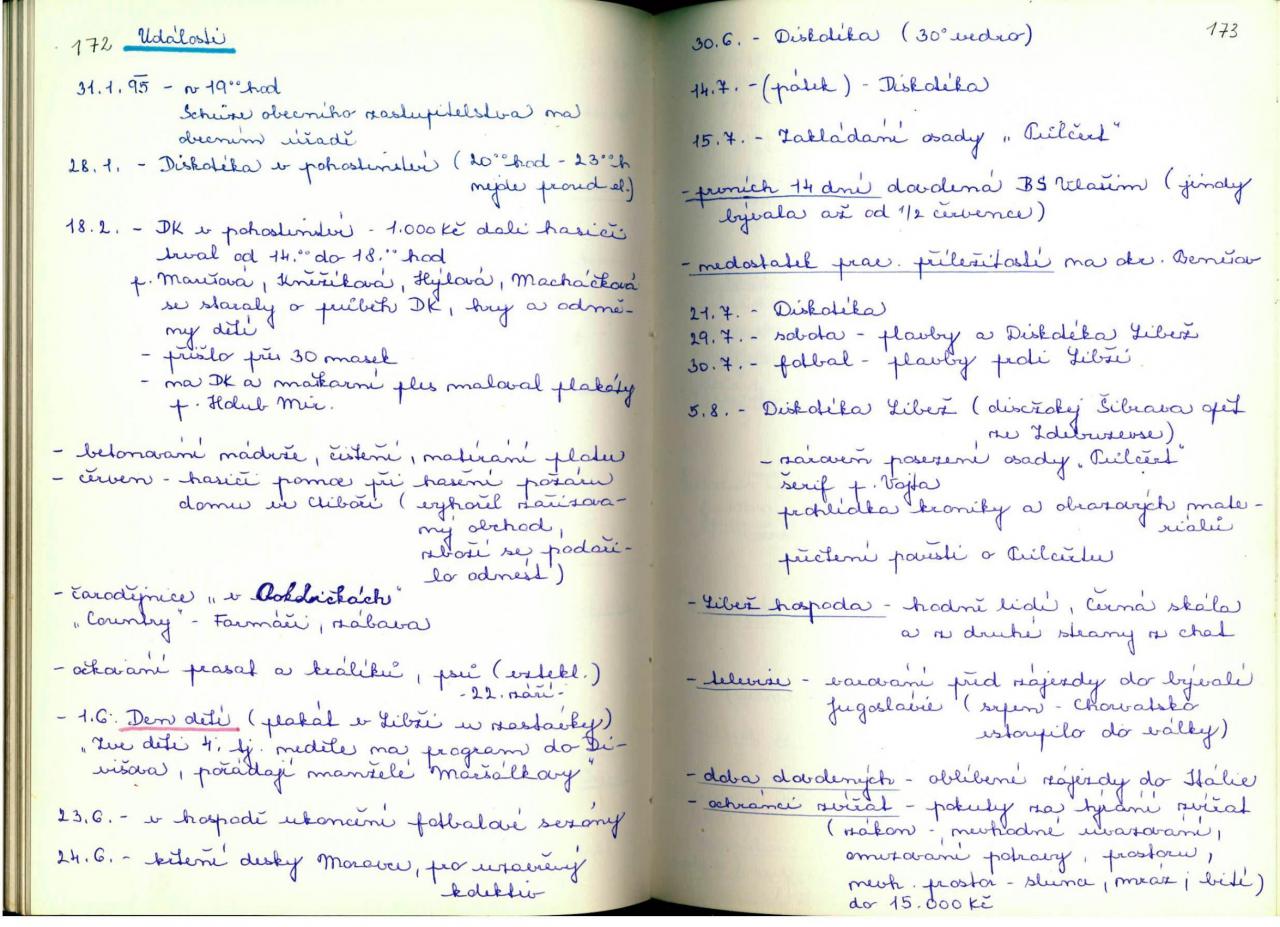 172 Události
31.1.95 - v 19°°hod
Schůze obecního zastupitelstva na
obecním úřadě
28.1. - Diskotéka v pohostinství (20°°hod - 23°°h
nejde proud el.)
18.2. - DK v pohostinství - 1.000 Kč dali hasiči
trval od 14.°° do 18.°° hod
p. Marušová, Kněžíková, Hýlová, Macháčková
se staraly o průběh DK, hry a odmě-
ny dětí
- přišlo přes 30 masek
- na DK a maškarní ples maloval plakáty
p. Holub Mir.
- betonování nádrže, čištění, natírání plotu
- červen - hasiči pomoc při hašení požáru
domu ve Ctiboři (vyhořel zařizova-
ný obchod,
zboží se podaři-
lo odnést)
- čarodějnice „v"
„Country" - Farmáři, zábava
- očkování prasat a králíků, psů (vztekl.)
- 22. září -
- 1.6. Den dětí (plakát v Libži u zastávky)
„Zve děti 4. tj. neděle na program do Di-
višova, pořádají manželé Maršálkovy"
23.6. - v hospodě ukončení fotbalové sezóny
24.6. - křtění desky Moravu, pro uzavřený
kolektiv
173
30.6. - Diskotéka (30° vedro)
14.7. - (pátek) - Diskotéka
15.7. - Zakládání osady „Pulčert"
- prvních 14 dní dovolená BS Vlašim (jindy
bývala až od 1/2 července)
- nedostatek prac. příležitostí na okr. Benešov
21.7. - Diskotéka
29.7. - sobota - plavby a Diskotéka Libež
30.7. - fotbal - plavby proti Libži
5.8. - Diskotéka Libež (discžokej Šibrava opět
ze Zdebuzevse)
- zároveň posezení osady „Pulčert"
šerif p. Vojta
prohlídka kroniky a obrazových mate-
riálů
přečtení pověsti o Pulčertu
- Libež hospoda - hodně lidí, Černá skála
a z druhé strany z chat
- televize - varování před zájezdy do bývalé
Jugoslávie (srpen - Chorvatsko
vstoupilo do války)
- doba dovolených - oblíbené zájezdy do Itálie
- ochránci zvířat - pokuty za týrání zvířat
(zákon - nevhodné uvazování,
omezování potravy, prostoru,
nevh. prostor - slunce, mráz; bití)
do 15.000 Kč